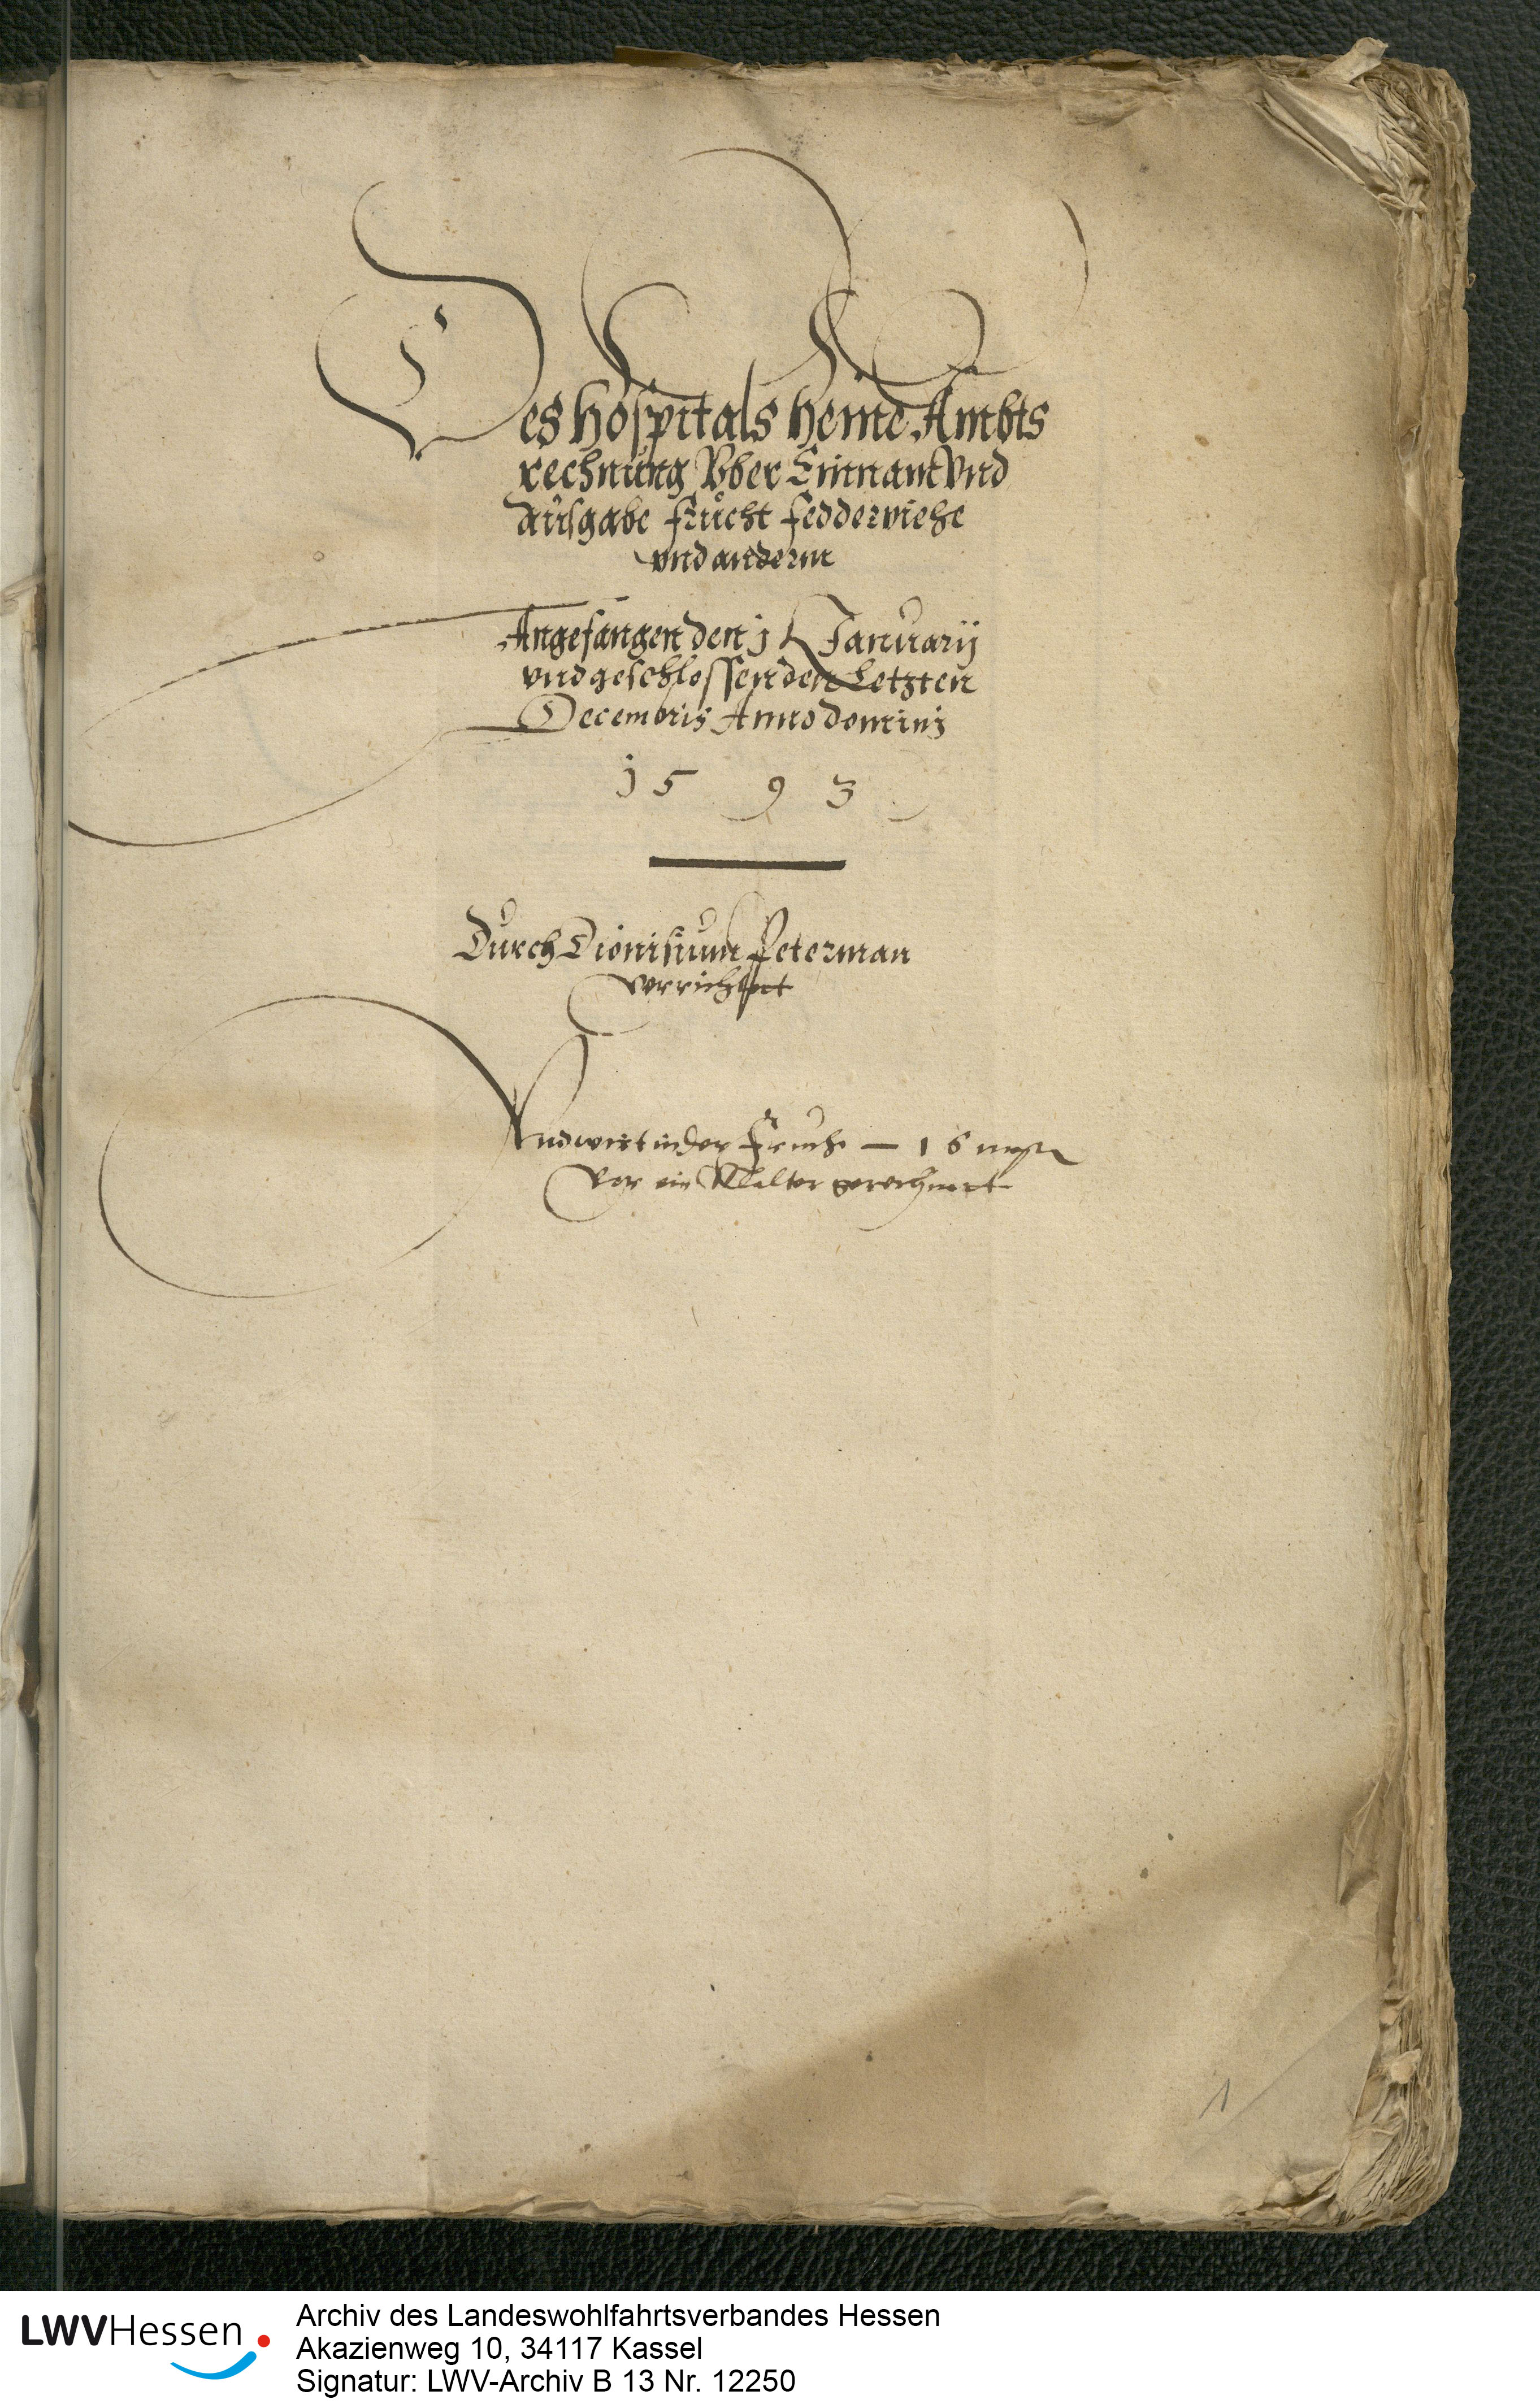 Des Hospitals Heine Ambts
rechnung Vber Einnam Vnd
Ausgabe frucht fedderviehe
vnd anderm
Angefangen den j Januarij
vnd geschlossen den Letzten
Decembris Anno dominj
1593
Durch Dionisium Peterman
verricht
Vnd wirt in der Frucht — 16
Vor ein Malter gerechnet
1
LWVHessen
Archiv des Landeswohlfahrtsverbandes Hessen
Akazienweg 10, 34117 Kassel
Signatur: LWV-Archiv B 13 Nr. 12250